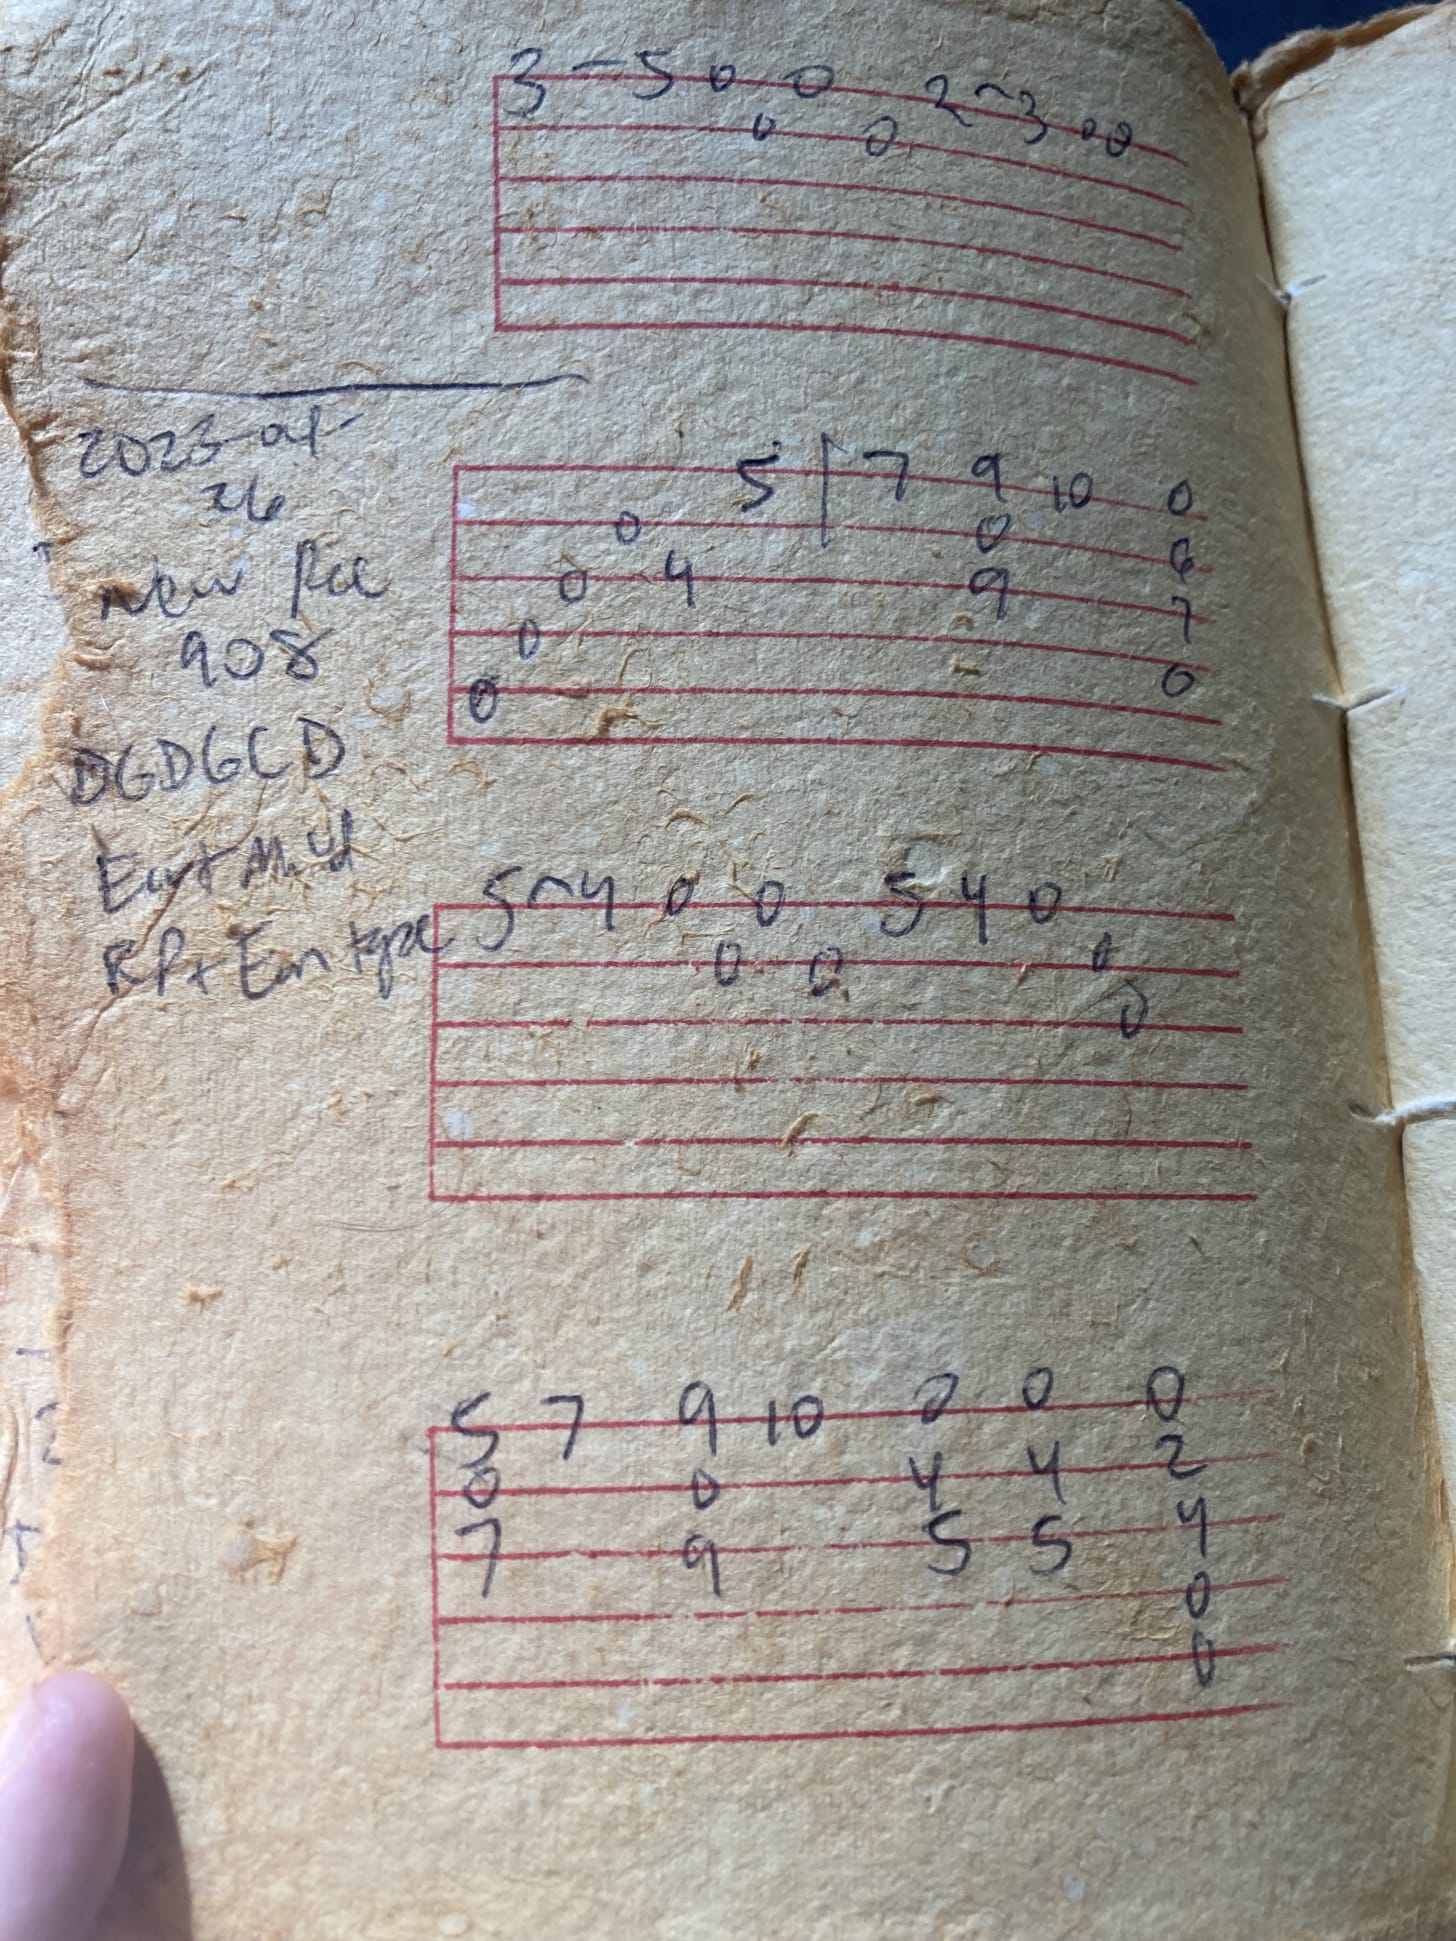 3 - 5 0 0 2 ~ 3 0 0
0 0
2023-01-
26
5 | 7 9 10 0
0 0 6
0 4 9 7
0 0
0
New Rec
908
DGDGCD
5 ~ 4 0 0 5 4 0
0 0 0
0
5 7 9 10 0 0 0
0 0 4 4 2
7 9 5 5 4
0
0